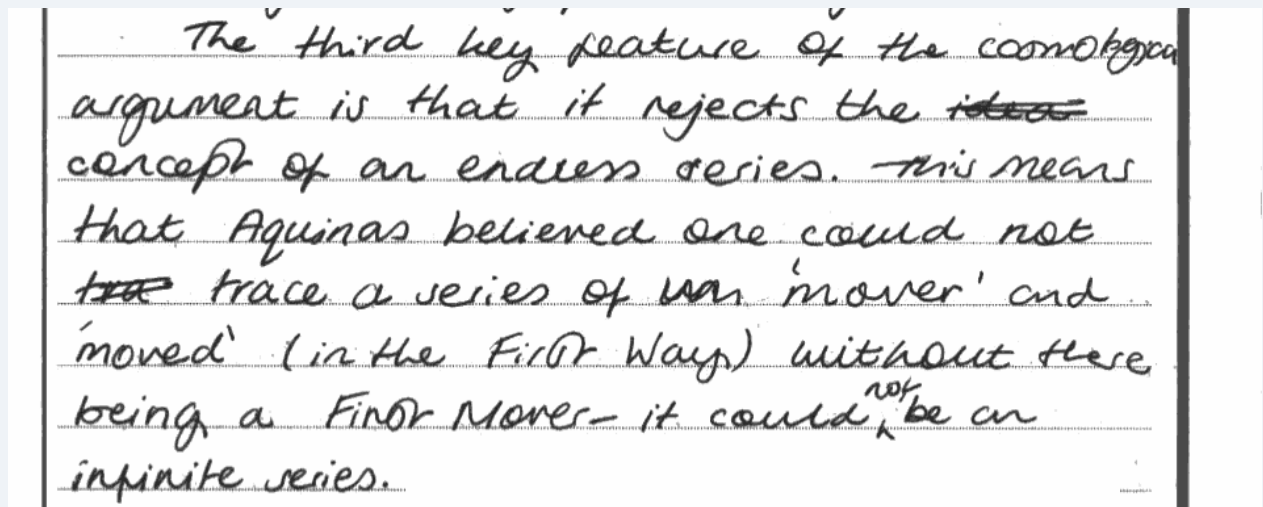 The third key feature of the cosmological
argument is that it rejects the idea
concept of an endless series. This means
that Aquinas believed one could not
tra trace a series of 'mover' and
'moved' (in the First Way) without there
being a First Mover - it could not be an
infinite series.